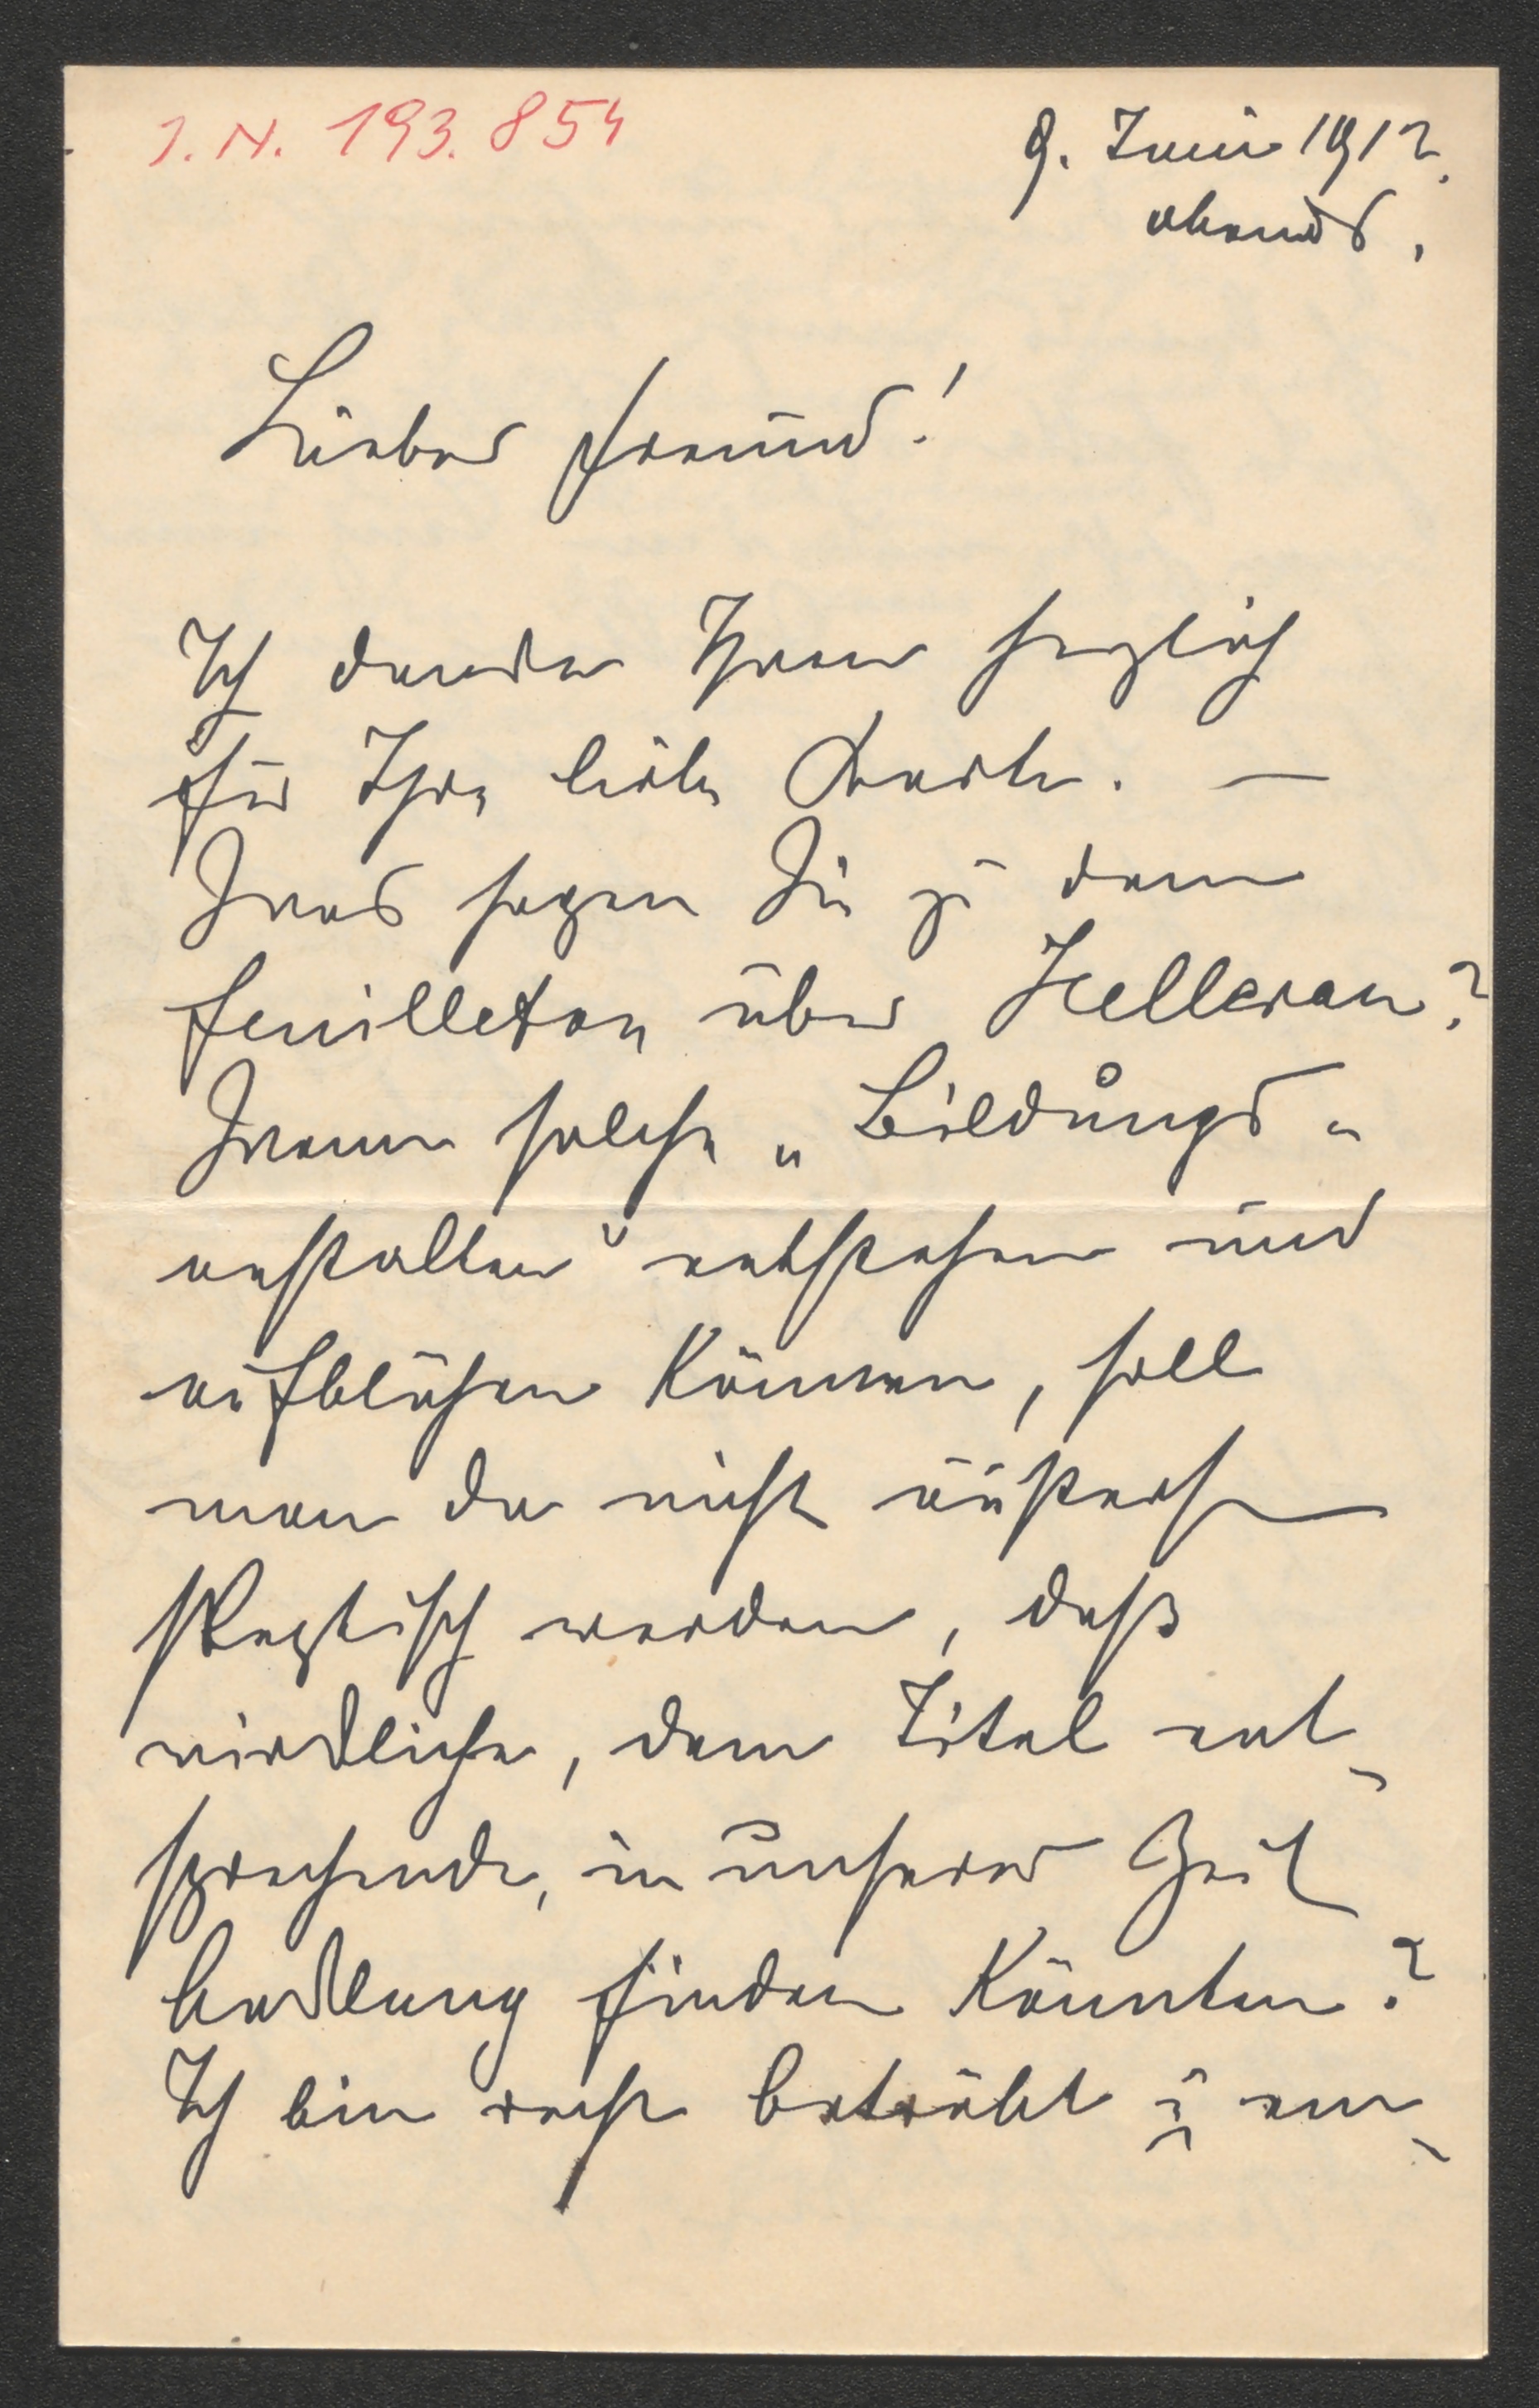 I.N. 193.854
9. Juni 1912.
abends.
Lieber Freund!
Ich danke Ihnen herzlich
für Ihre liebe Karte. —
Was sagen Sie zu dem
Feuilleton über Hellerau?
Wenn solche „Bildungs-
anstalten“ entstehen und
aufblühen können, soll
man da nicht äußerst
skeptisch werden, daß
wirkliche, dem Titel ent-
sprechende, in unserer Zeit
Geltung finden könnten?
Ich bin recht betrübt u em-